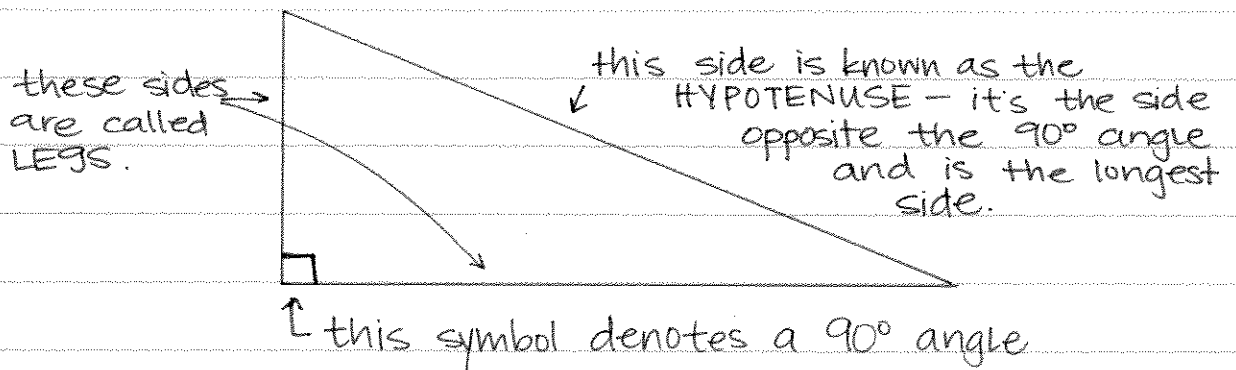 these sides
are called
LEGS.
this side is known as the
HYPOTENUSE — it's the side
opposite the 90° angle
and is the longest
side.
this symbol denotes a 90° angle